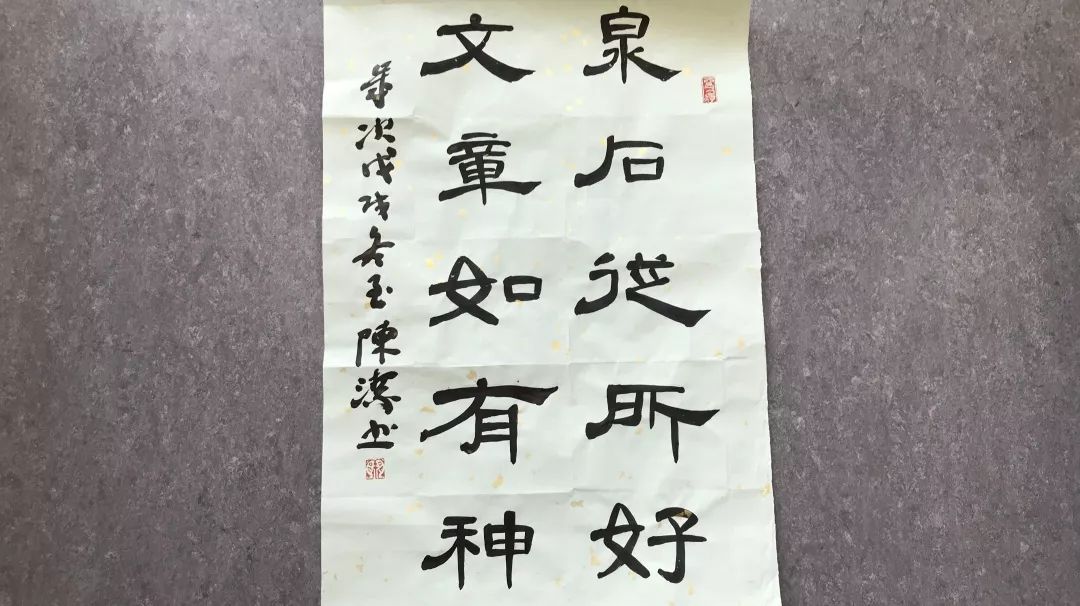 泉石從所好
文章如有神
歲次戊戌冬至陳潔书